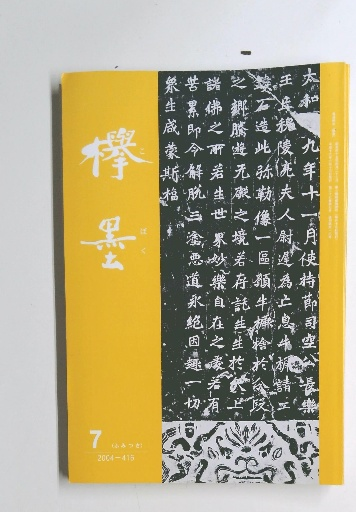 太和 九年十一月使持節司空公長樂
王丘穆陵亮夫人尉遲為亡息牛橛請工
鏤石造此弥勒像一區願牛橛捨於分段
之鄉騰遊无礙之境若存託生生於天上
諸佛之所若生世界妙樂自在之處若有
苦累即令解脫三塗惡道永絕因趣一切
衆生咸蒙斯福
欅墨
ぼく
7 (ふみつき)
2004